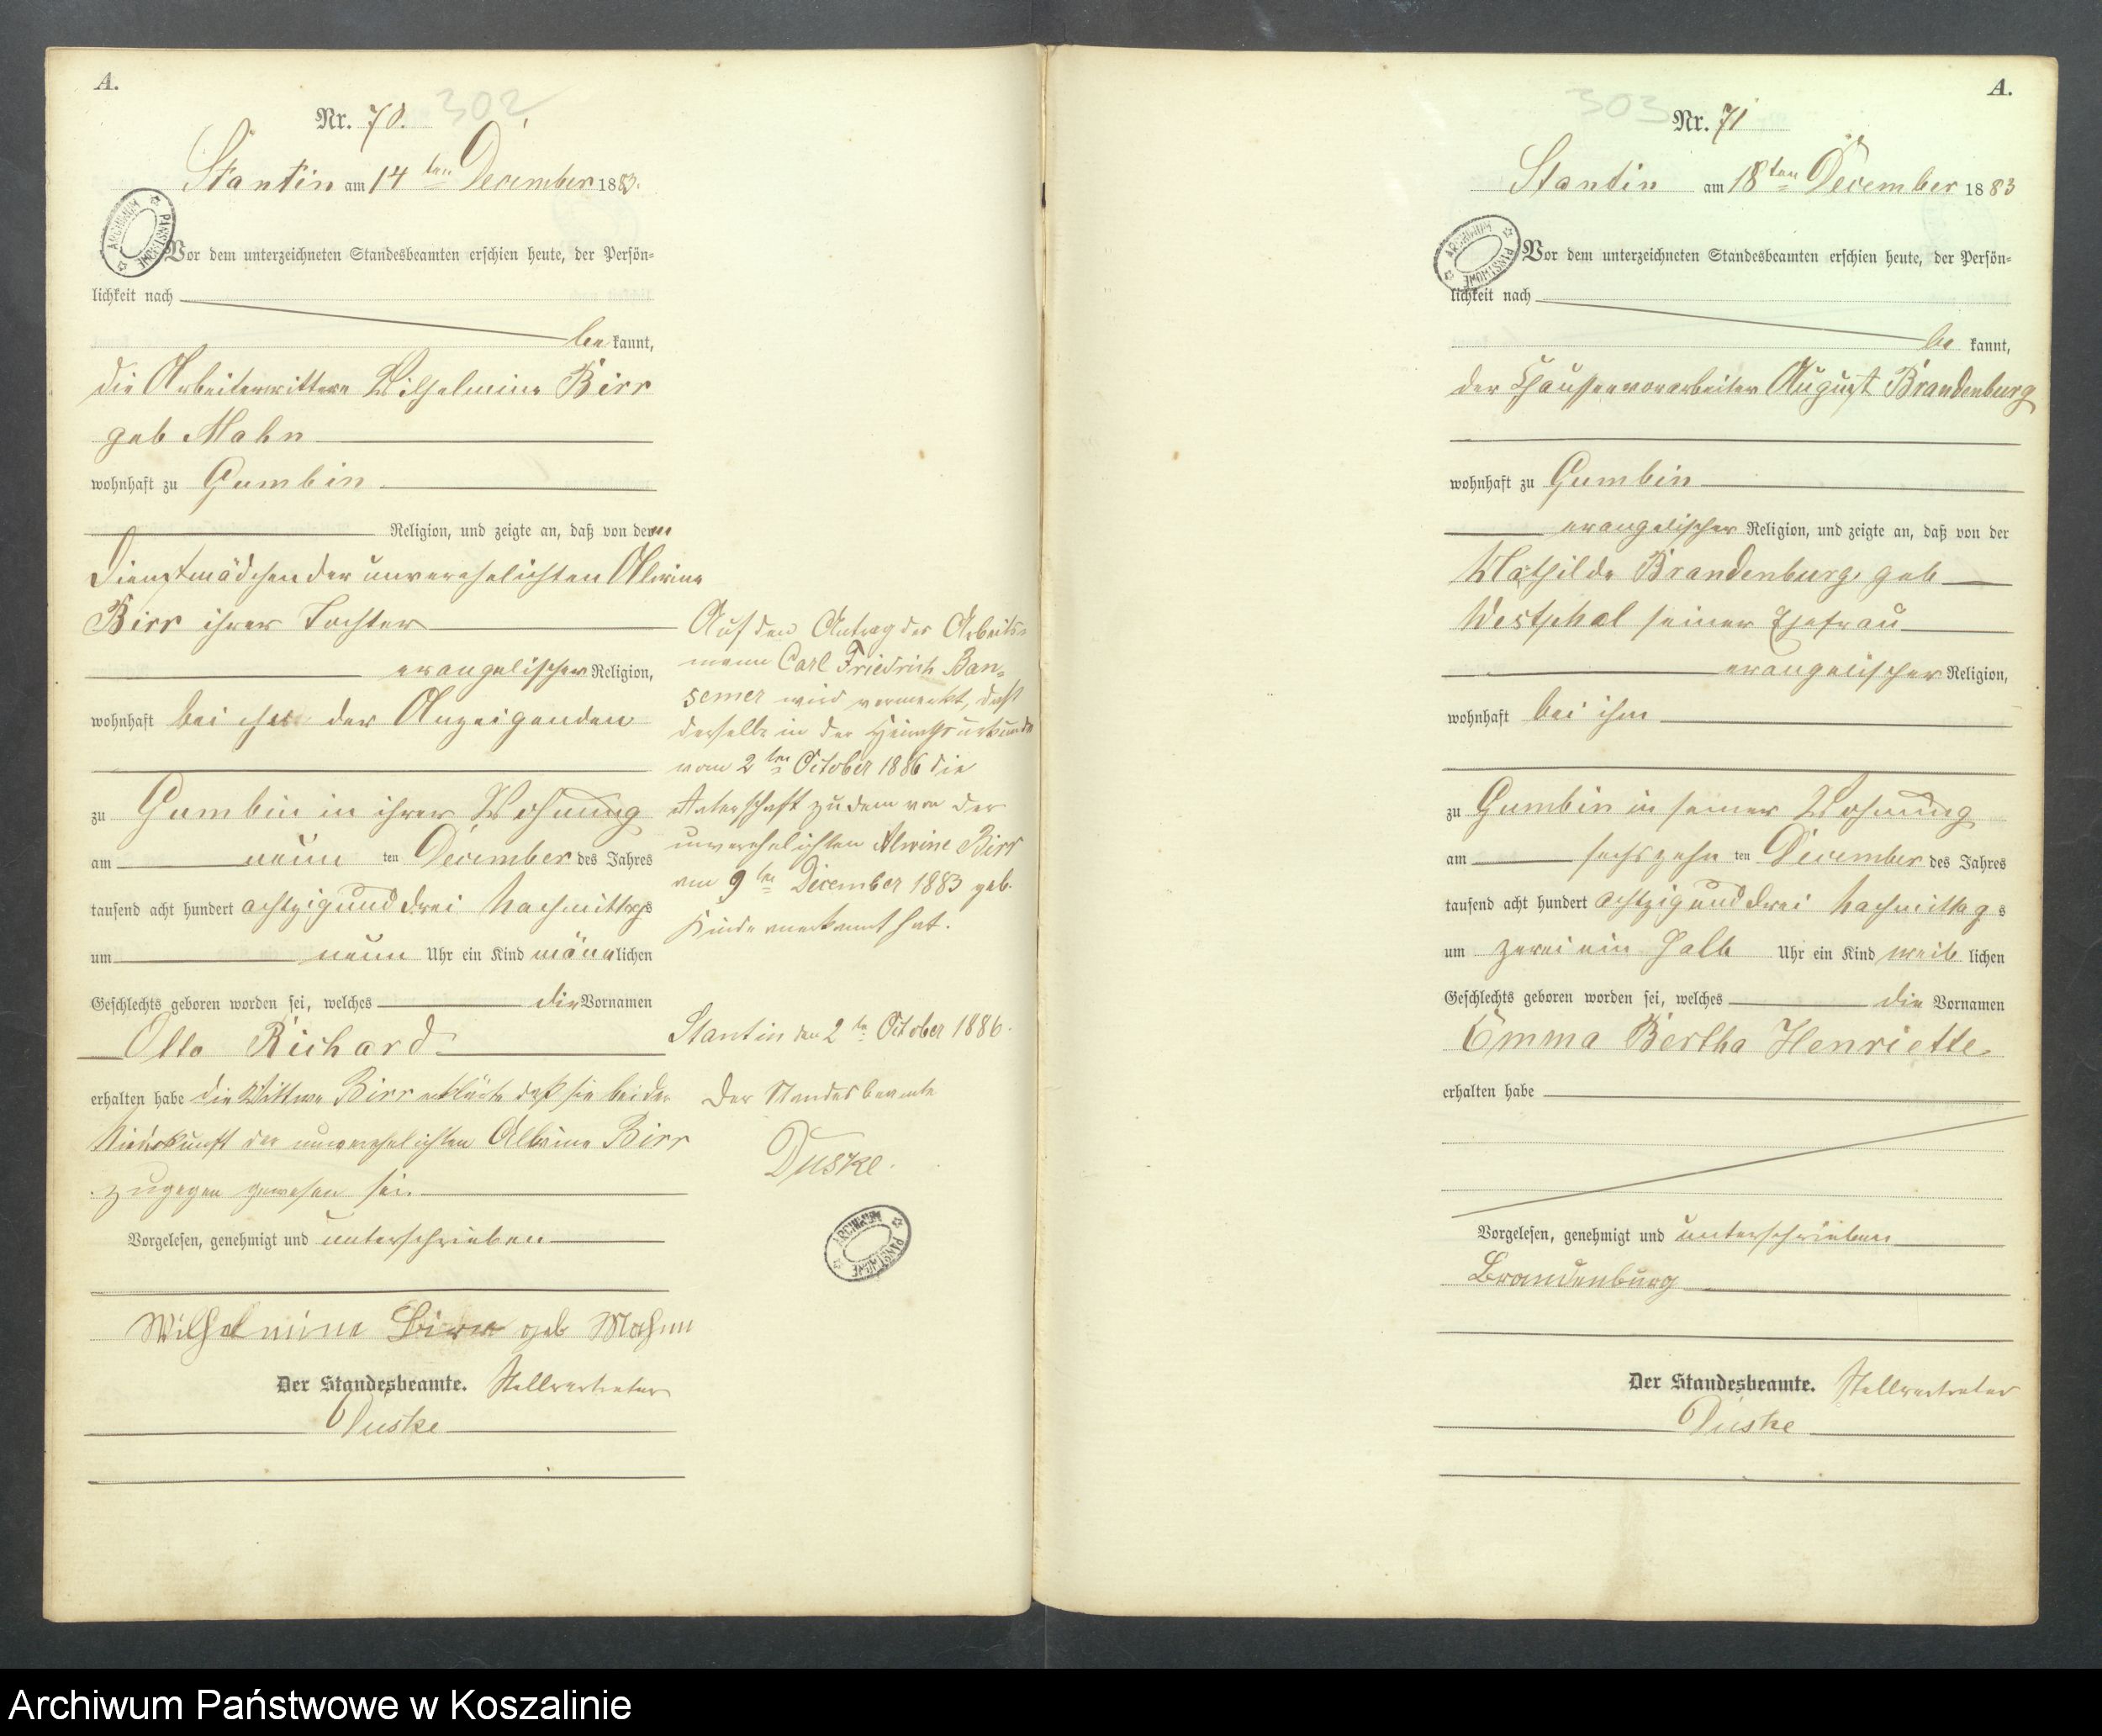 A.
302
Nr. 70.
Stantin am 14ten December 1883.
ARCHIWUM PAŃSTWOWE
Vor dem unterzeichneten Standesbeamten erschien heute, der Persön-
lichkeit nach
be kannt,
die Arbeiterwittwe Wilhelmine Birr
geb Mahn
wohnhaft zu Gumbin
Religion, und zeigte an, daß von dem
Dienstmädchen der unverehelichten Alwine
Birr ihrer Tochter
evangelischer Religion,
wohnhaft bei der Anzeigenden
zu Gumbin in ihrer Wohnung
am neun ten December des Jahres
tausend acht hundert achtzig und drei Nachmittags
um neun Uhr ein Kind männlichen
Geschlechts geboren worden sei, welches die Vornamen
Otto Richard
erhalten habe die Wittwe Birr erklärte daß sie bei der
Niederkunft der unverehelichten Alwine Birr
zugegen gewesen sei.
Vorgelesen, genehmigt und unterschrieben
Wilhelmine Birr geb Mahnn
Der Standesbeamte. Stellvertreter
Duske
Auf den Antrag des Arbeits-
mann Carl Friedrich Ban-
semer wird vermerkt, daß
derselbe in der Heirathsurkunde
vom 2ten October 1886 die
Vaterschaft zu dem von der
unverehelichten Alwine Birr
am 9ten December 1883 geb.
Kinde anerkannt hat.
Stantin den 2ten October 1886.
Der Standesbeamte
Duske.
ARCHIWUM PAŃSTWOWE
A.
303
Nr. 71
Stantin am 18ten December 1883
ARCHIWUM PAŃSTWOWE
Vor dem unterzeichneten Standesbeamten erschien heute, der Persön-
lichkeit nach
be kannt,
der Chausseevorarbeiter August Brandenburg
wohnhaft zu Gumbin
evangelischer Religion, und zeigte an, daß von der
Mathilde Brandenburg geb
Westphal seiner Ehefrau
evangelischer Religion,
wohnhaft bei ihm
zu Gumbin in seiner Wohnung
am sechszehn ten December des Jahres
tausend acht hundert achtzig und drei Nachmittags
um zwei ein halb Uhr ein Kind weib lichen
Geschlechts geboren worden sei, welches die Vornamen
Emma Bertha Henriette
erhalten habe
Vorgelesen, genehmigt und unterschrieben
Brandenburg
Der Standesbeamte. Stellvertreter
Duske
Archiwum Państwowe w Koszalinie